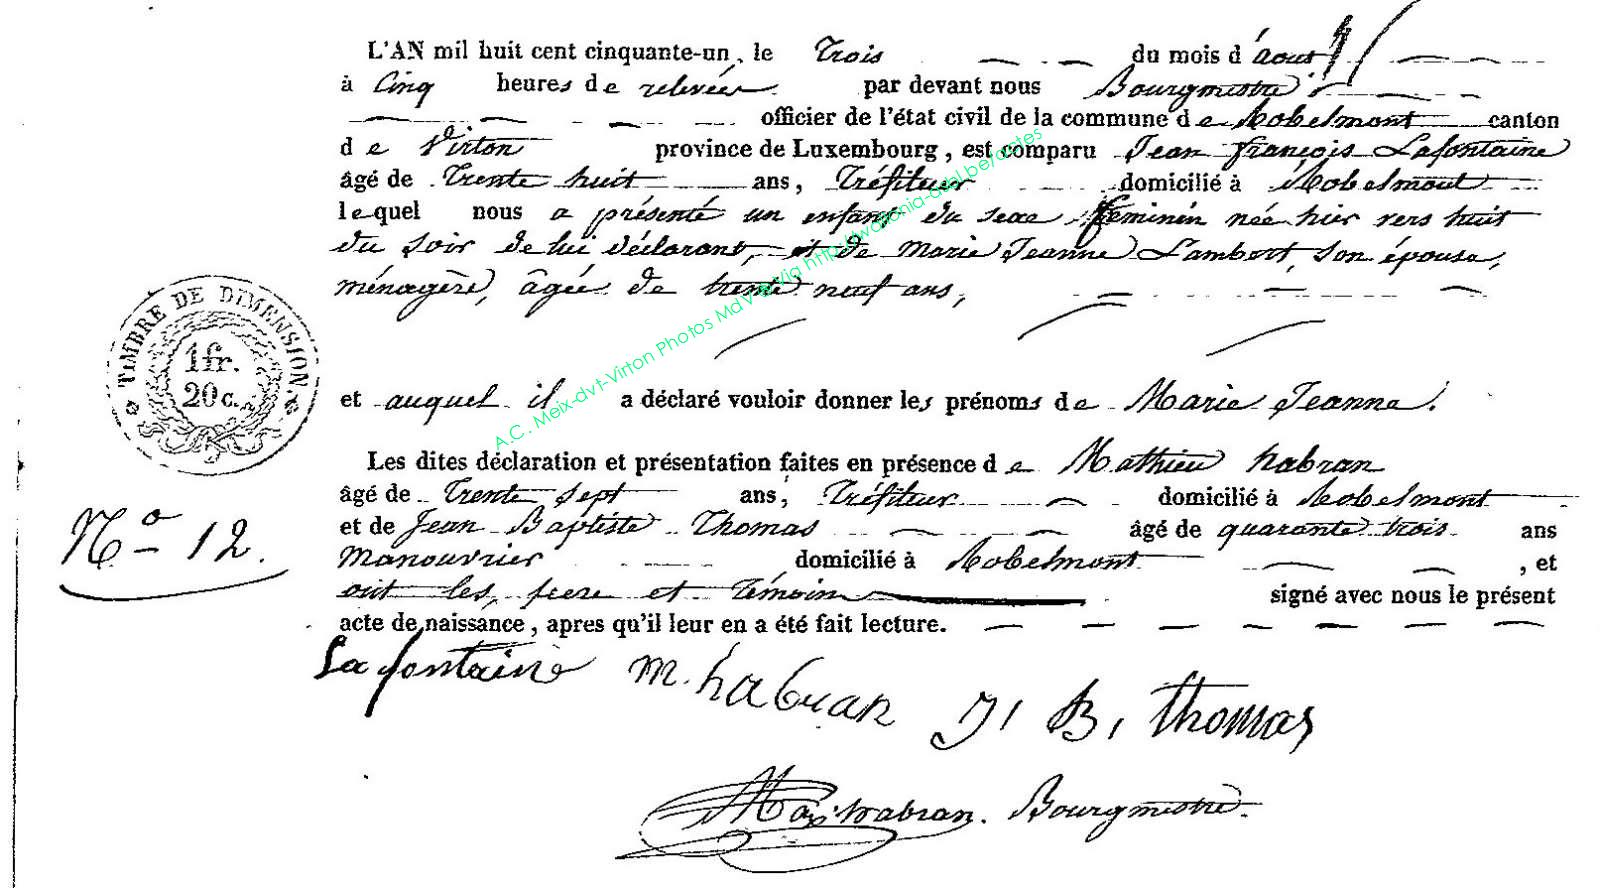 L'AN mil huit cent cinquante-un, le Trois du mois d'août
à Cinq heures de relevée par devant nous Bourgmestre
officier de l'état civil de la commune de Robelmont canton
de Virton province de Luxembourg, est comparu Jean françois Lafontaine
âgé de Trente huit ans, Tréfileur domicilié à Robelmont
lequel nous a présenté un enfant du sexe feminin née hier vers huit
du soir de lui déclarant, et de Marie Jeanne Lambert, son épouse,
ménagère, âgée de trente neuf ans,
TIMBRE DE DIMENSION
1fr.
20c.
et auquel il a déclaré vouloir donner les prénoms de Marie Jeanne.
Les dites déclaration et présentation faites en présence de Mathieu habran
âgé de Trente sept ans, Tréfileur domicilié à Robelmont
N° 12.
et de Jean Baptiste Thomas âgé de quarante trois ans
Manouvrier domicilié à Robelmont, et
ont les, pere et Témoin signé avec nous le présent
acte de naissance, apres qu'il leur en a été fait lecture.
La fontaine M. habran J B, Thomas
habran. Bourgmestre.
A.C. Meix-dvt-Virton Photos MdV © Via http://wallonia-asbl.be/actes